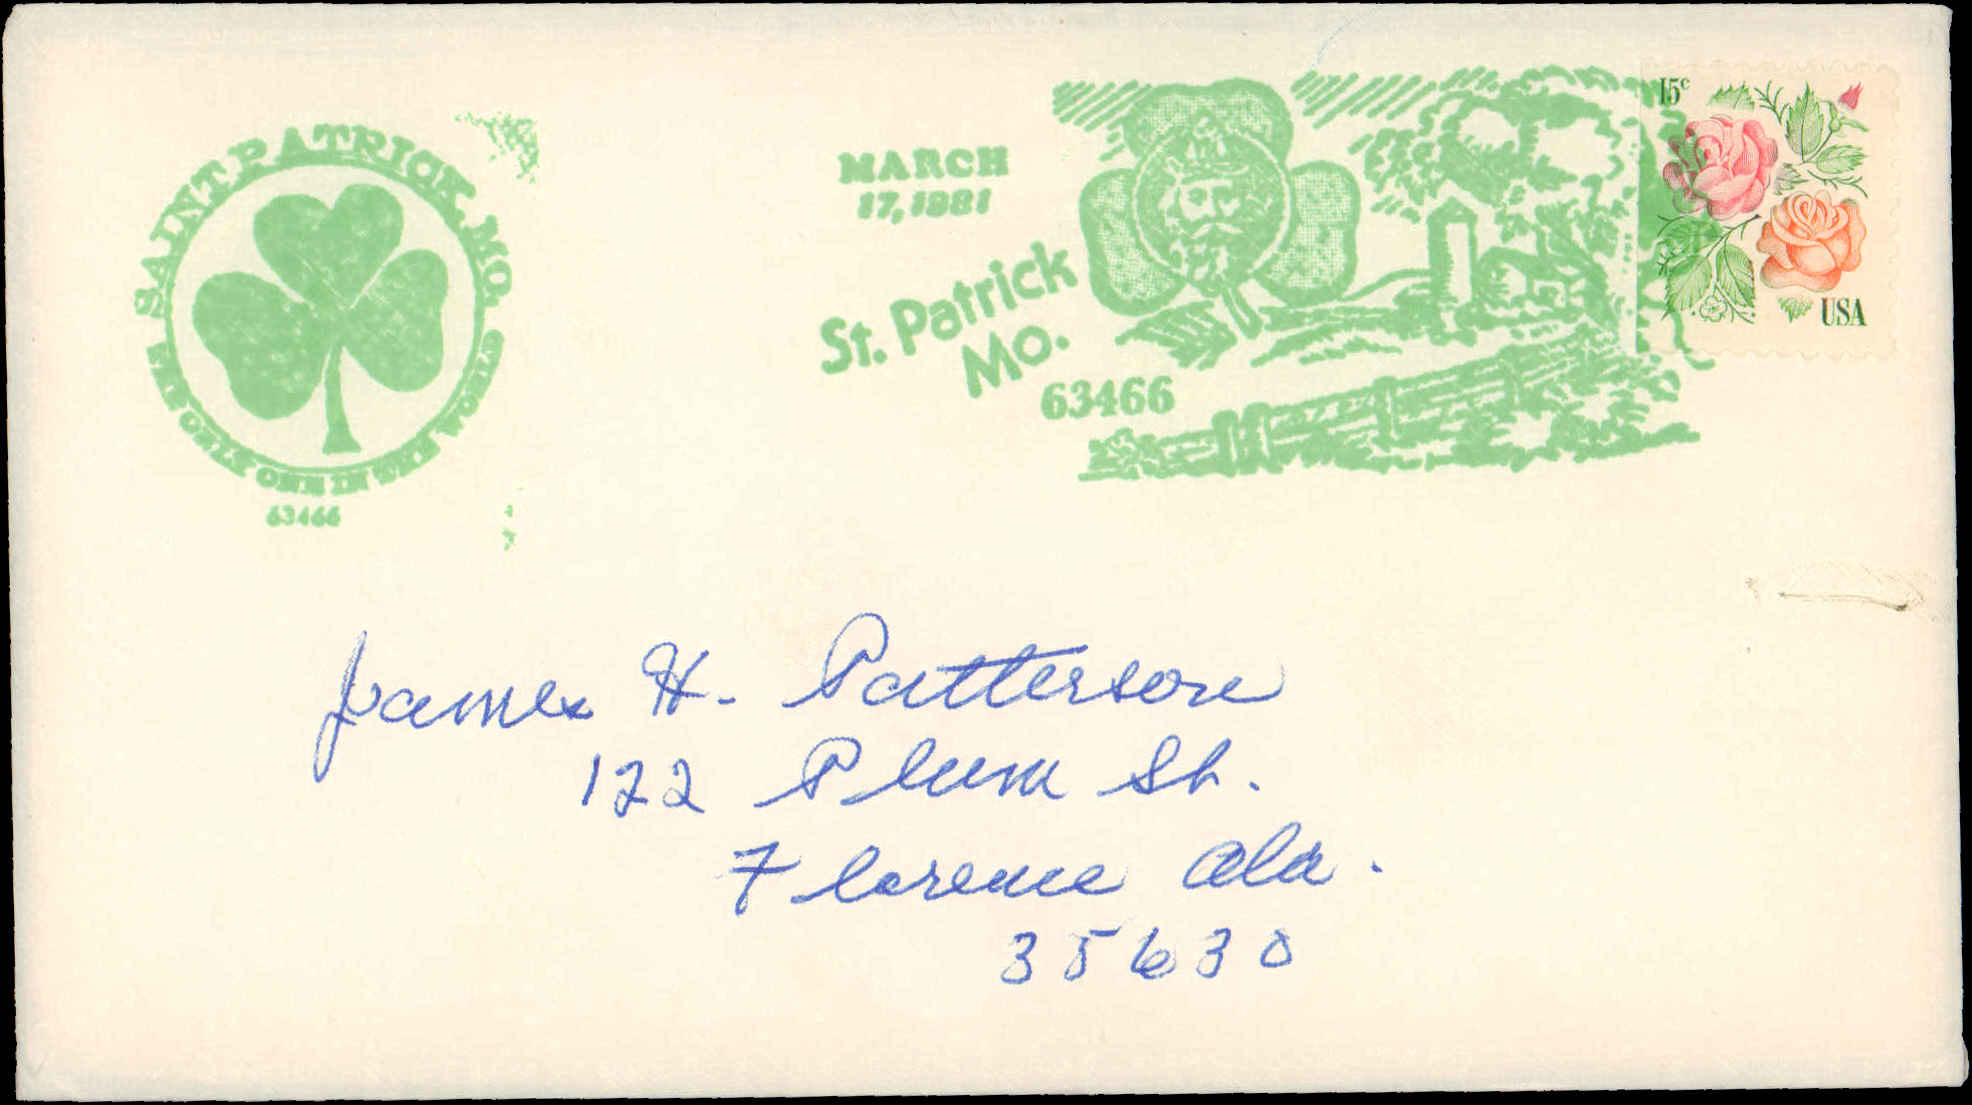 SAINT PATRICK, MO.
THE ONLY ONE IN THE WORLD
63466
MARCH
17, 1981
St. Patrick
Mo.
63466
15c
USA
James H. Patterson
122 Plum St.
Florence Ala.
35630